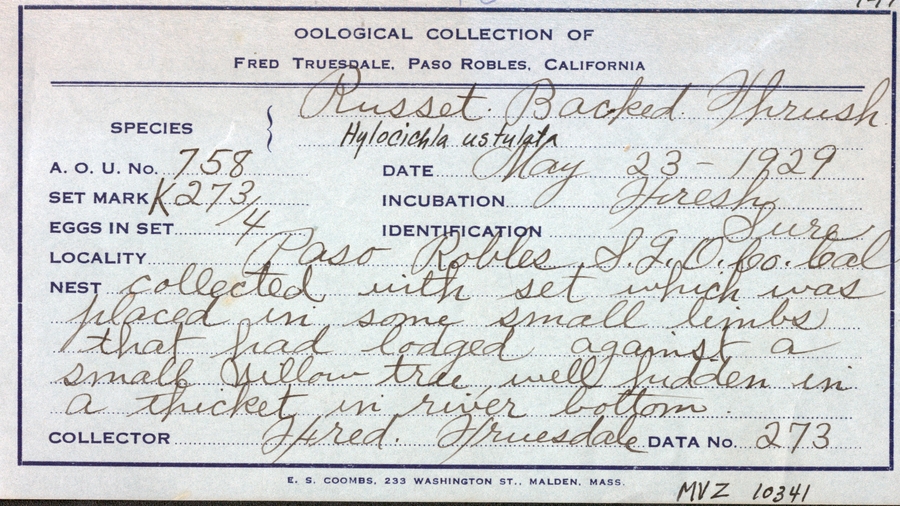 OOLOGICAL COLLECTION OF
FRED TRUESDALE, PASO ROBLES, CALIFORNIA
SPECIES } Russet Backed Thrush
Hylocichla ustulata
A. O. U. No. 758 DATE May 23 - 1929
SET MARK K273/4 INCUBATION Fresh
EGGS IN SET IDENTIFICATION Sure
LOCALITY Paso Robles S.L.O. Co. Cal
NEST collected with set which was
placed in some small limbs
that had lodged against a
small Willow tree well hidden in
a thicket in river bottom.
COLLECTOR Fred. Truesdale DATA No. 273
E. S. COOMBS, 233 WASHINGTON ST., MALDEN, MASS.
MVZ 10341